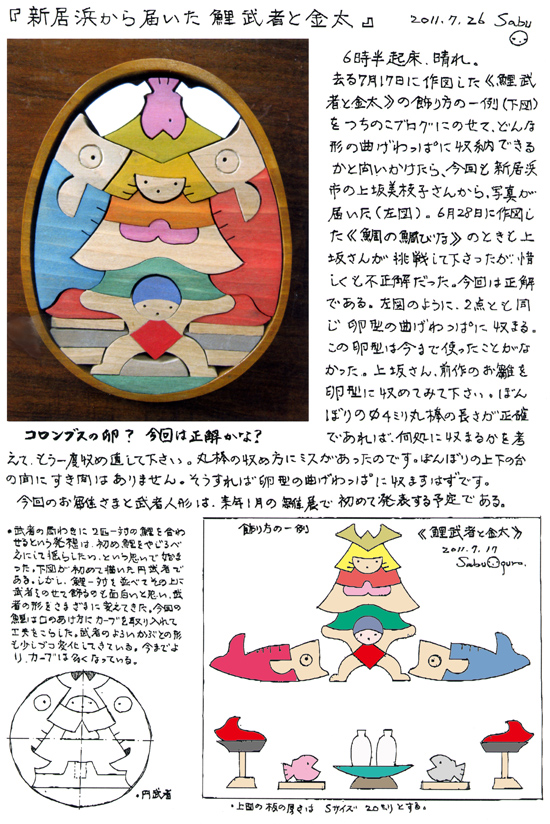 『新居浜から届いた 鯉武者と金太』
2011.7.26 Sabu
6時半起床、晴れ。
去る7月17日に作図した《鯉武
者と金太》の飾り方の一例(下図)
をつちのこブログにのせて、どんな
形の曲げわっぱに収納できる
かと問いかけたら、今回も新居浜
市の上坂美枝子さんから、写真が
届いた(左図)。6月28日に作図し
た《鯛の鯛びな》のときも上
坂さんが挑戦して下さったが、惜
しくも不正解だった。今回は正解
である。左図のように、2点とも同
じ卵型の曲げわっぱに収まる。
この卵型は今まで使ったことがな
かった。上坂さん、前作のお雛を
卵型に収めてみて下さい。ぼん
ぼりのφ4ミリ丸棒の長さが正確
であれば、何処に収まるかを考
コロンブスの卵? 今回は正解かな?
えて、もう一度収め直して下さい。丸棒の収め方にミスがあったのです。ぼんぼりの上下の台
の間にすき間はありません。そうすれば卵型の曲げわっぱに収まるはずです。
今回のお雛さまと武者人形は、来年1月の雛展で初めて発表する予定である。
•武者の両わきに2匹一対の鯉を合わ
せるという発想は、初め、鯉をやじろべ
えにして揺らしたい、という思いで始ま
った。下図が初めて描いた円武者で
ある。しかし、鯉一対を並べてその上に
武者をのせて飾るのも面白いと思い、武
者の形をさまざまに変えてきた。今回の
鯉は口のあけ方にカーブを取り入れて
工夫をこらした。武者のよろいかぶとの形
も少しづつ変化してきている。今までよ
り、カーブは多くなっている。
•円武者
飾り方の一例
《鯉武者と金太》
2011.7.17
Sabu Oguro.
•上図の板の厚さは Sサイズ 20ミリとする。